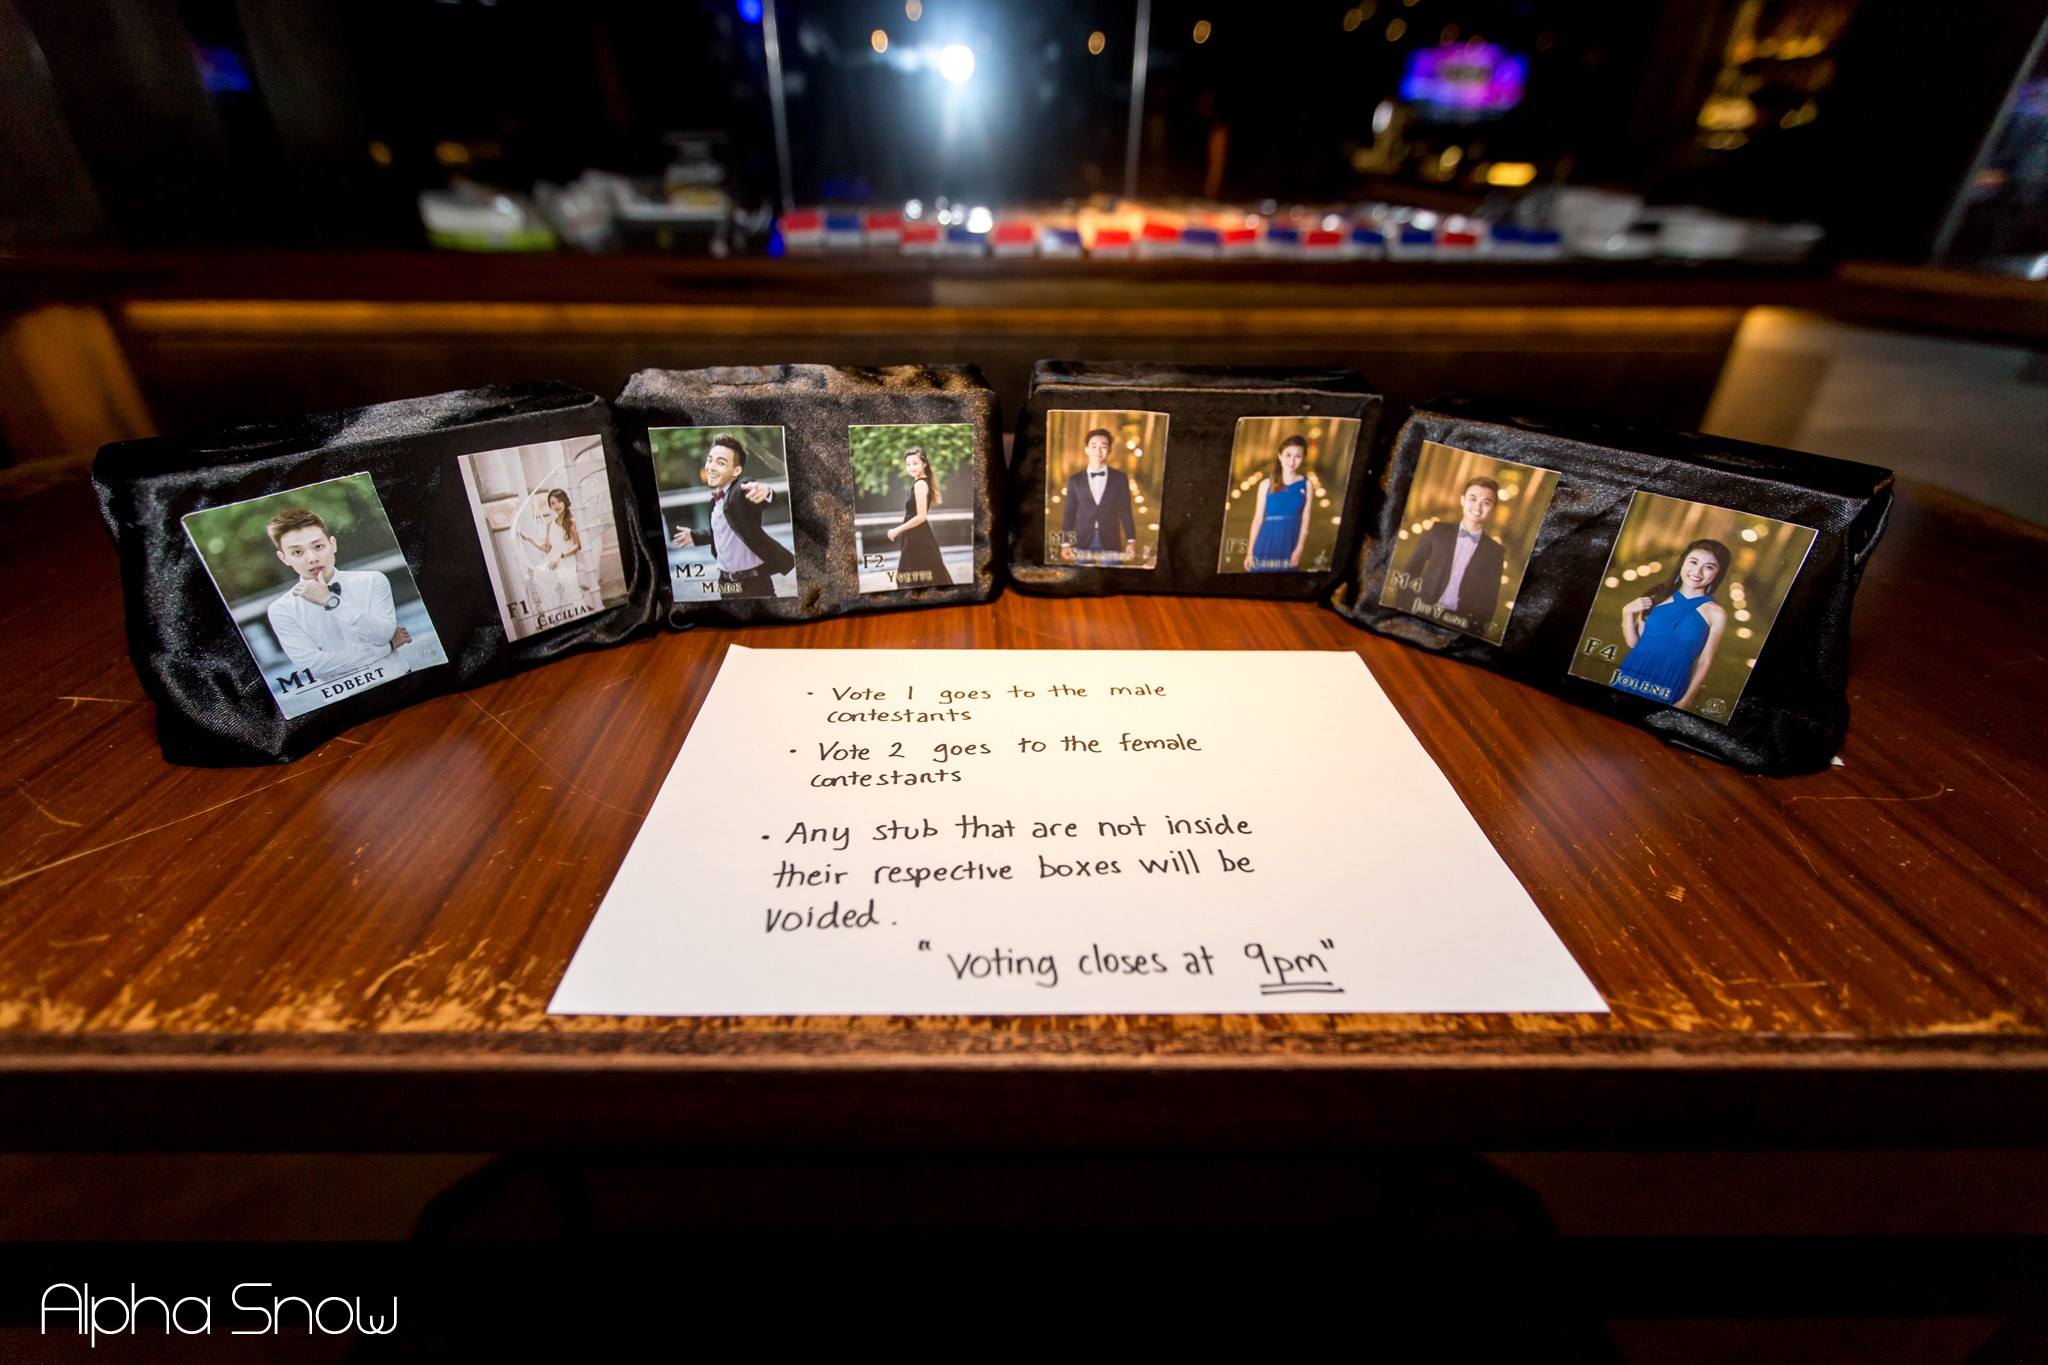 M1
EDBERT
F1
CECILIA
M2
MARK
F2
YVETTE
M3
F3
M4
F4
JOLENE
• Vote 1 goes to the male
contestants
• Vote 2 goes to the female
contestants
• Any stub that are not inside
their respective boxes will be
voided.
"Voting closes at 9pm"
Alpha Snow